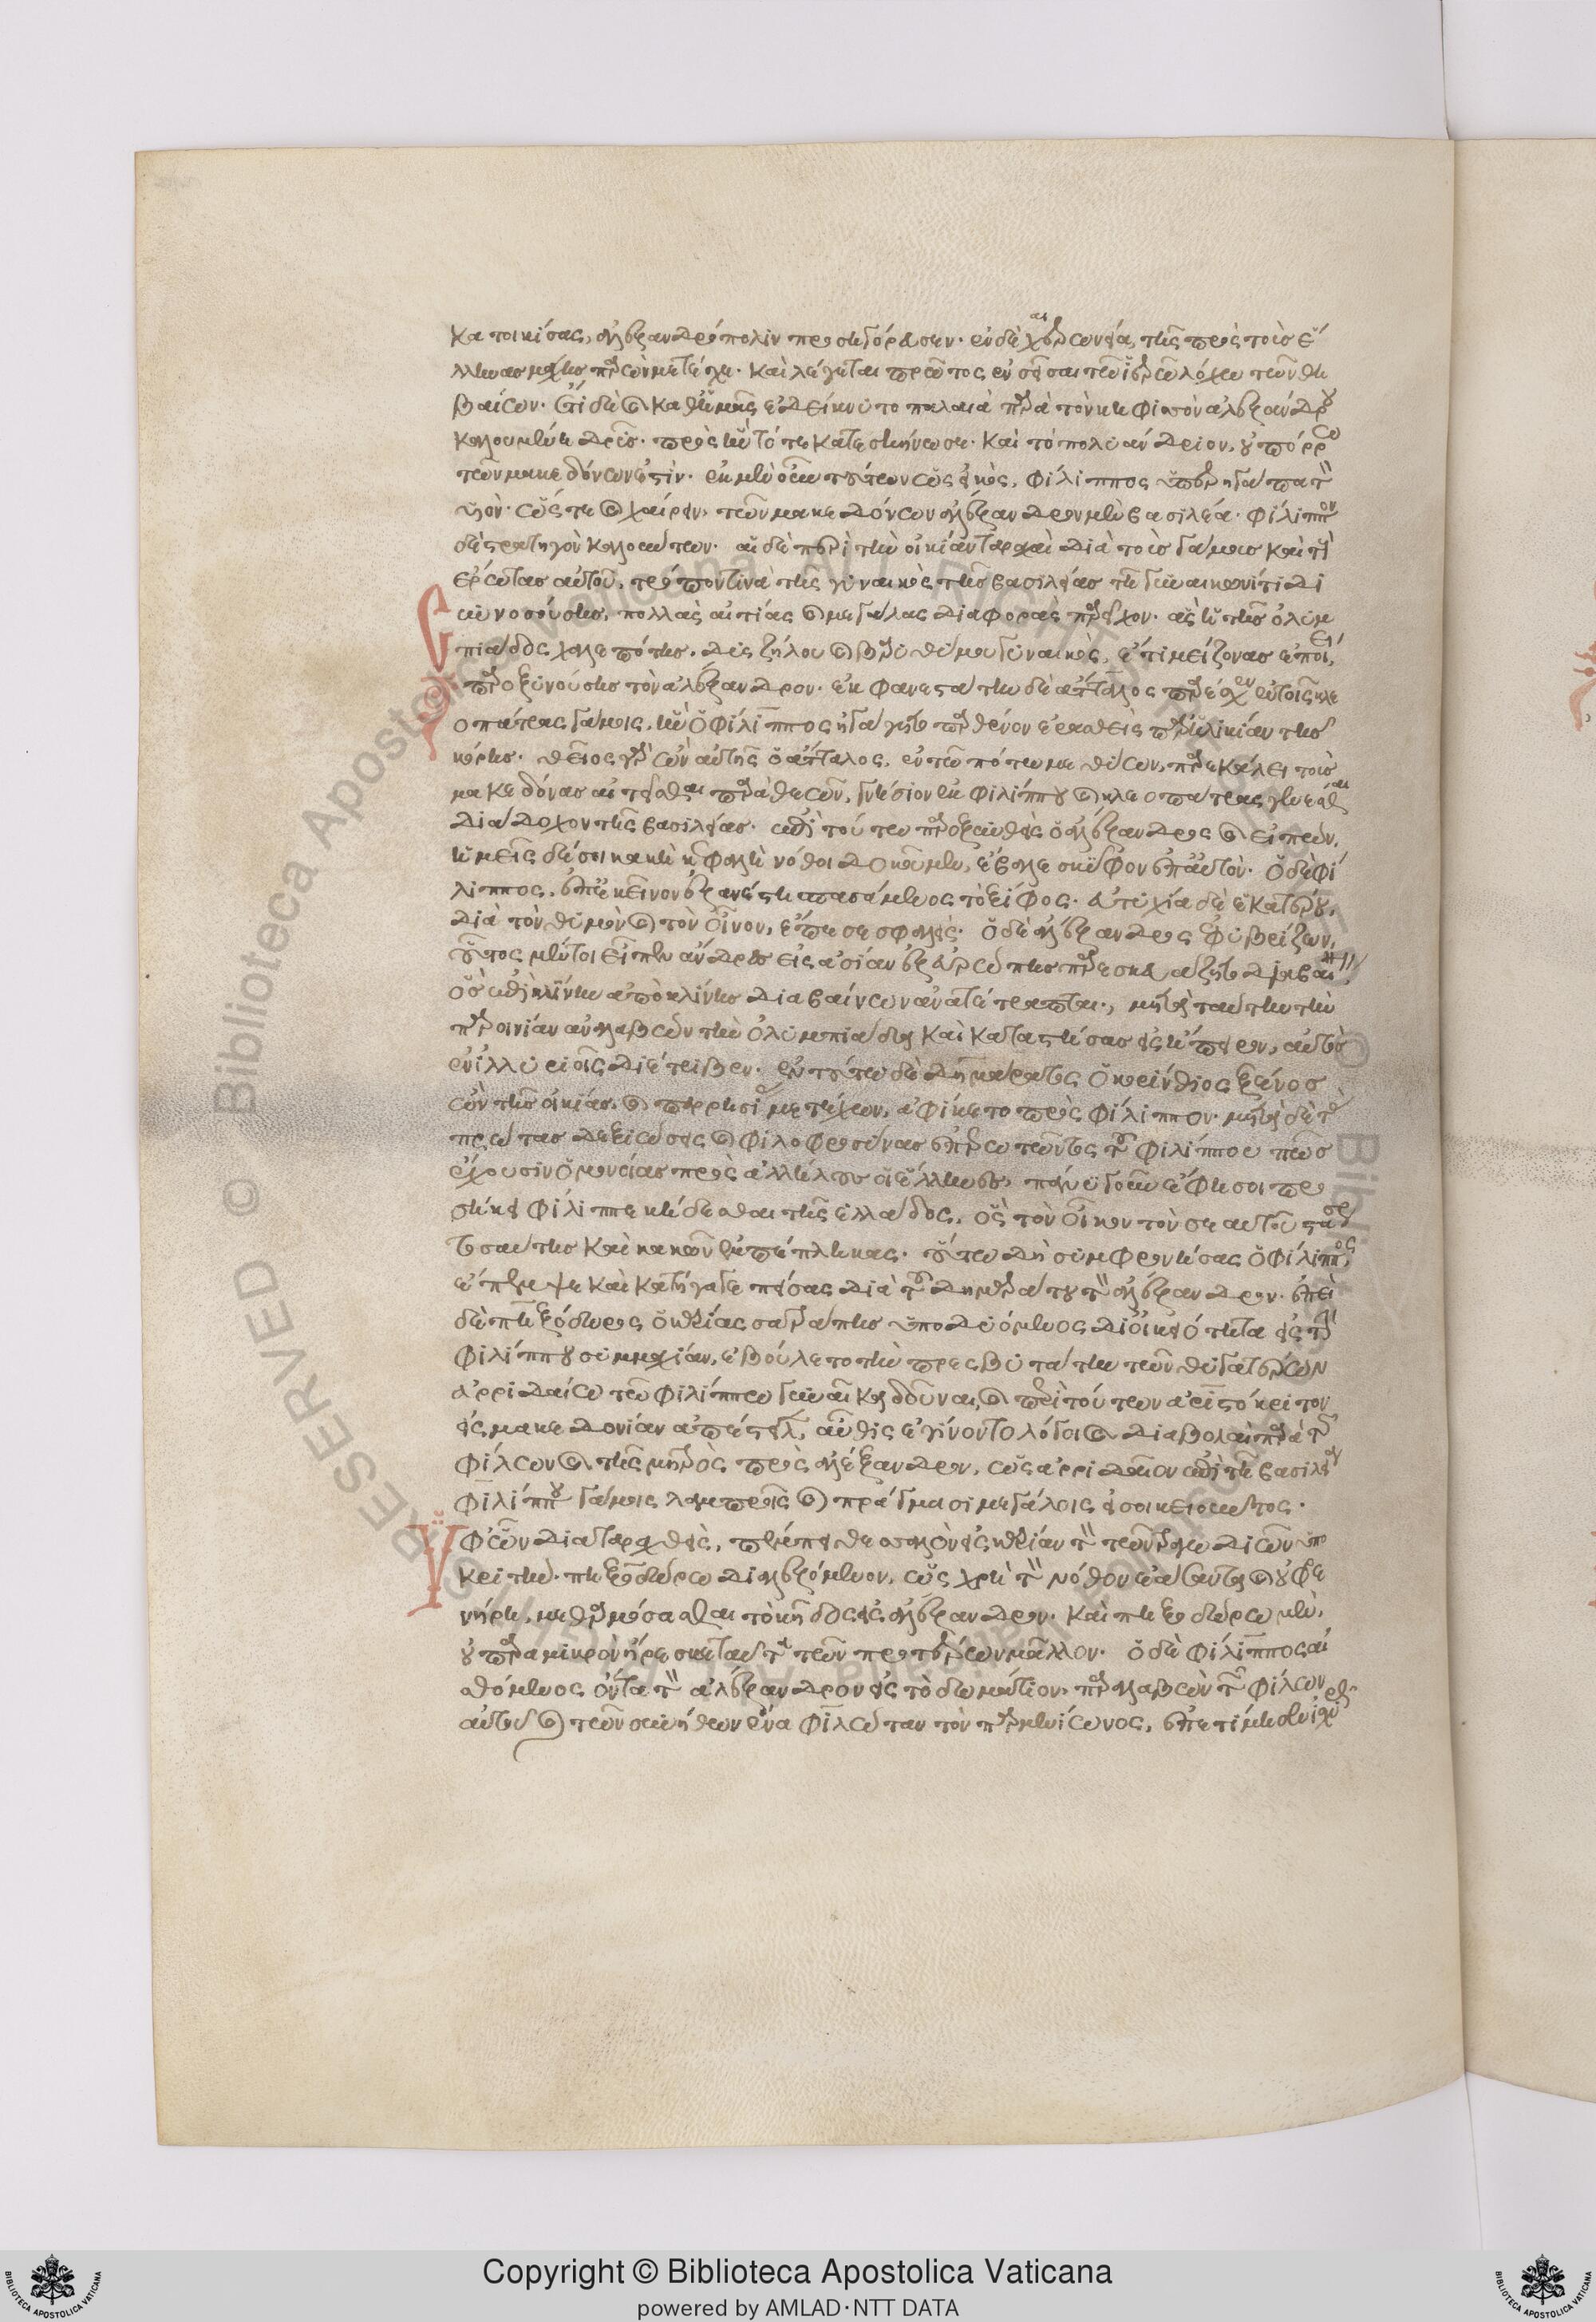 κατοικίσας, ἀλεξανδρόπολιν προσηγόρευσεν. ἐν δὲ χαιρωνεία, τῆς πρὸς τοὺς ἕλ
ληνας μάχης παρὼν μετέσχε. καὶ λέγεται πρῶτος ἐνσεῖσαι τῶ ἱερῶ λόχω τῶν θη
βαίων. ἔτι δὲ καὶ καθ' ἡμᾶς ἐδείκνυτο παλαιὰ παρὰ τὸν κηφισὸν ἀλεξάνδρου
καλουμένη δρῦς. πρὸς ἣν τότε κατεσκήνωσε. καὶ τὸ πολυάνδριον, οὐ πόρρω
τῶν μακεδόνων ἐστίν. ἐκ μὲν οὖν τούτων ὡς εἰκὸς, φίλιππος ὑπερηγάπα τὸν
υἱόν. ὥστε καὶ χαίρειν, τῶν μακεδόνων ἀλέξανδρον μὲν βασιλέα. φίλιππον
δὲ στρατηγὸν καλούντων. αἱ δὲ περὶ τὴν οἰκίαν ταραχαὶ διὰ τοὺς γάμους καὶ τοὺς
ἔρωτας αὐτοῦ, τρόπον τινὰ τῆς γυναικὸς τῆς βασιλείας τῆ γυναικωνίτιδι
συνοσούσης, πολλὰς αἰτίας καὶ μεγάλας διαφορὰς παρεῖχον. ἃς ἡ τῆς ὀλυμ
πιάδος χαλεπότης. δυσζήλου καὶ βαρυθύμου γυναικὸς, ἔτι μείζονας ἐποίει,
παροξυνούσης τὸν ἀλέξανδρον. ἐκφανεστάτην δὲ ἄτταλος παρέσχεν ἐν τοῖς κλε
οπάτρας γάμοις, ἣν ὁ φίλιππος ἠγάγετο παρθένον ἐρασθεὶς παρ' ἡλικίαν τῆς
κόρης. θεῖος γὰρ ὢν αὐτῆς ὁ ἄτταλος, ἐν τῶ πότω μεθύων, παρεκάλει τοὺς
μακεδόνας αἰτεῖσθαι παρὰ θεῶν, γνήσιον ἐκ φιλίππου καὶ κλεοπάτρας γενέσθαι
διάδοχον τῆς βασιλείας. ἐπὶ τούτω παροξυνθεὶς ὁ ἀλέξανδρος καὶ εἰπὼν,
ἡμεῖς δέ σοι κακὴ κεφαλὴ νόθοι δοκοῦμεν, ἔβαλε σκύφον ἐπ' αὐτὸν. ὁ δὲ φί
λιππος, ἐπ' ἐκεῖνον ἐξανέστη σπασάμενος τὸ ξίφος. εὐτυχία δὲ ἑκατέρου,
διὰ τὸν θυμὸν καὶ τὸν οἶνον, ἔπεσε σφαλεὶς. ὁ δὲ ἀλέξανδρος ἐφυβρίζων,
οὗτος μέντοι εἶπεν ἄνδρες εἰς ἀσίαν ἐξ εὐρώπης παρεσκευάζετο διαβαίνειν
ὃς ἐπὶ κλίνην ἀπὸ κλίνης διαβαίνων ἀνατέτραπται. μετὰ ταύτην τὴν
παροινίαν ἀναλαβὼν τὴν ὀλυμπιάδα καὶ καταστήσας εἰς ἤπειρον, αὐτὸς
ἐν ἰλλυριοῖς διέτριβεν. ἐν τούτω δὲ δημάρατος ὁ κορίνθιος ξένος
ὢν τῆς οἰκίας, καὶ παρρησίας μετέχων, ἀφίκετο πρὸς φίλιππον. μετὰ δὲ τὰς
πρώτας δεξιώσεις καὶ φιλοφροσύνας ἐπερωτῶντος τοῦ φιλίππου πῶς
ἔχουσιν ὁμονοίας πρὸς ἀλλήλους οἱ ἕλληνες, πάνυ γοῦν ἔφη σοι προ
σήκει φίλιππε κήδεσθαι τῆς ἑλλάδος, ὃς τὸν οἶκον τὸν σεαυτοῦ στάσεως
τοσαύτης καὶ κακῶν ἐμπέπληκας. οὕτω δὴ συμφρονήσας ὁ φίλιππος,
ἔπεμψε καὶ κατήγαγε πείσας διὰ τοῦ δημαράτου τὸν ἀλέξανδρον. ἐπεὶ
δὲ πηξόδωρος ὁ καρίας σατράπης ὑποδυόμενος δι' οἰκειότητα εἰς τὴν
φιλίππου συμμαχίαν, ἐβούλετο τὴν πρεσβυτάτην τῶν θυγατέρων
ἀρριδαίω τῶ φιλίππου γυναῖκα δοῦναι, καὶ περὶ τούτων ἀριστόκριτον
εἰς μακεδονίαν ἀπέστειλεν, αὖθις ἐγίνοντο λόγοι καὶ διαβολαὶ παρὰ τῶν
φίλων καὶ τῆς μητρὸς πρὸς ἀλέξανδρον, ὡς ἀρριδαῖον ἐπὶ τῆ βασιλεία
φιλίππου γάμοις λαμπροῖς καὶ πράγμασι μεγάλοις εἰσοικειοῦντος.
ὑφ' ὧν διαταραχθεὶς, πέμπει θεσσαλὸν εἰς καρίαν τὸν τῶν τραγωδιῶν ὑπο
κριτὴν. πηξοδώρω διαλεξόμενον, ὡς χρὴ τὸν νόθον ἐάσαντα καὶ οὐ φρε
νήρη, μεθαρμόσασθαι τὸ κῆδος εἰς ἀλέξανδρον. καὶ πηξοδώρω μὲν,
οὐ παρὰ μικρὸν ἤρεσκε ταῦτα τῶν προτέρων μᾶλλον. ὁ δὲ φίλιππος αἰ
σθόμενος ὄντα τὸν ἀλέξανδρον εἰς τὸ δωμάτιον, παραλαβὼν τῶν φίλων
αὐτοῦ καὶ τῶν συνήθων ἕνα φιλώταν τὸν παρμενίωνος, ἐπετίμησεν ἰσχυ